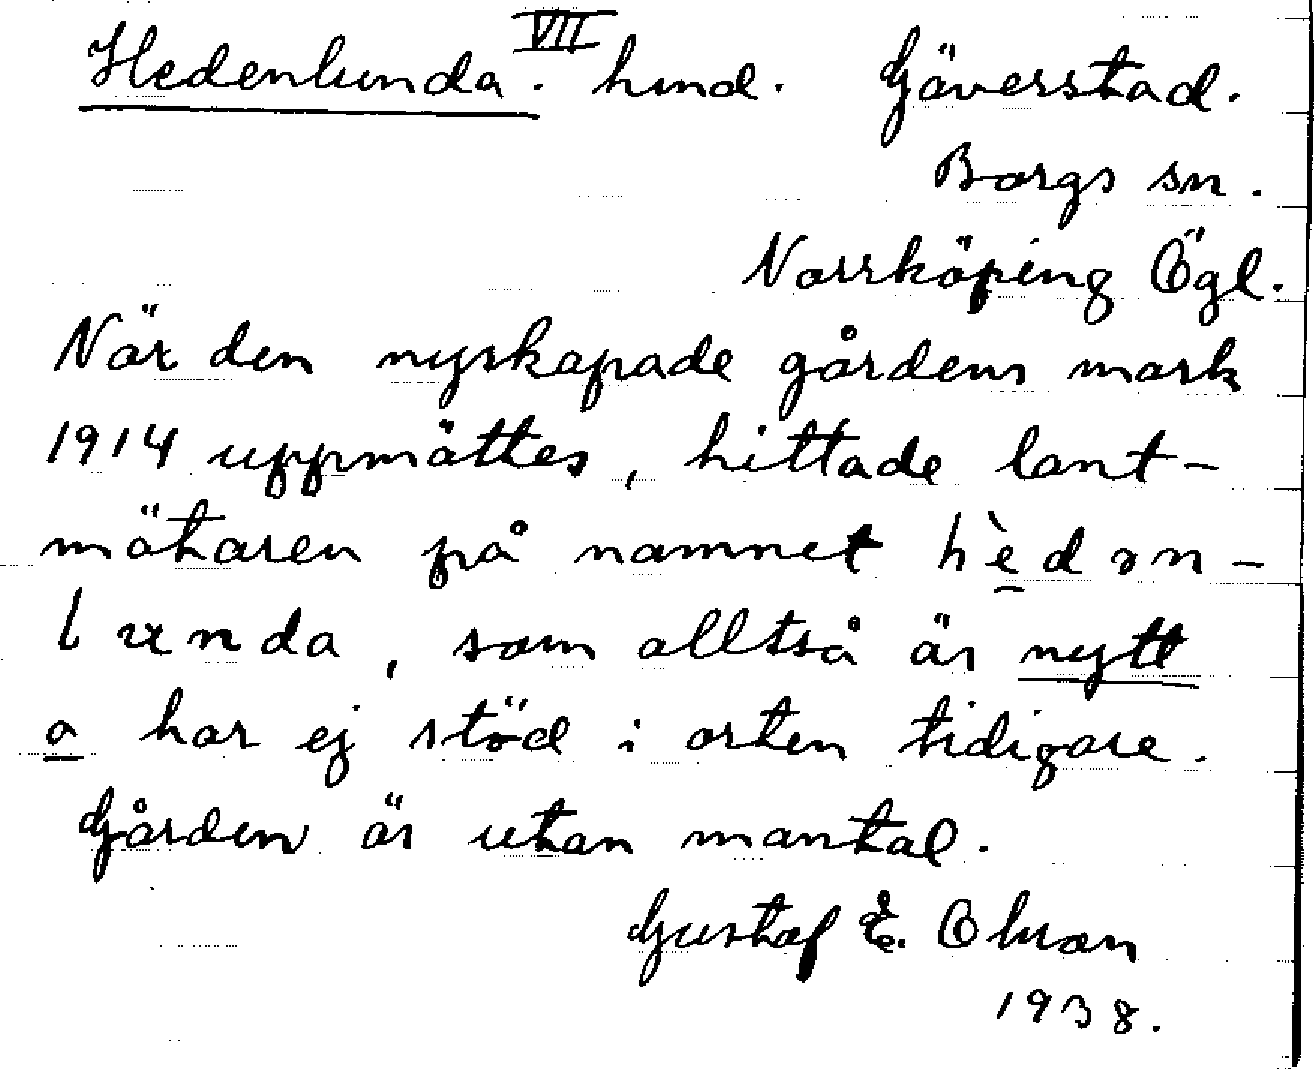 Hedenlunda. VII hund. Gäverstad.
Borgs sn.
Norrköping Ögl.
När den nyskapade gårdens mark
1914 uppmättes, hittade lant-
mätaren på namnet hèdən-
lunda, som alltså är nytt
o har ej stöd i orten tidigare.
Gården är utan mantal.
Gustaf E. Olsson
1938.